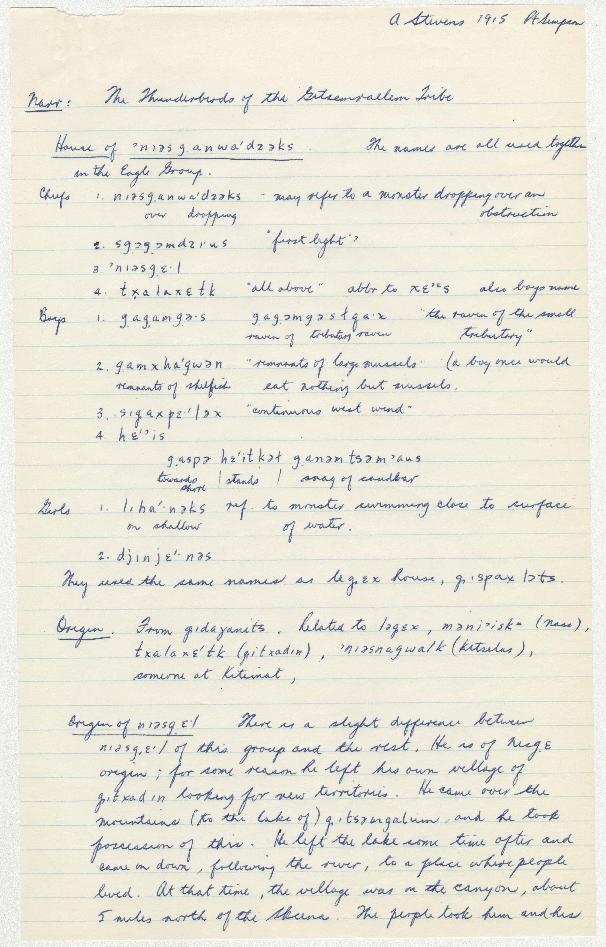 A Stevens 1915 Pt Simpson
Narr: The Thunderbirds of the Gitsemrallem Tribe
House of ʾniəsg̣anwa'dzəks The names are all used together
in the Eagle Group.
Chiefs 1. niəsg̣anwa'dzəks - may refer to a monster dropping over an
over dropping obstruction
2. sg̣əg̣əmdzi·us "first light"?
3. ʾniəsg̣ɛ·l
4. txalaxɛtk "all above" abbr to also boys name
Boys 1. g̣ag̣amg̣ə·s g̣ag̣əmg̣əstqa·x "the raven of the small
raven of tributary raven tributary"
2. g̣amxha'gwən "remnants of large mussels" (a boy once would
remnants of shellfish eat nothing but mussels.
3. sig̣axpɛ·'ləx "continuous west wind"
4. hɛ·'ʾis
g̣aspə hɛ'itkət g̣anəmtsəmʾaus
towards shore | stands | snag of sandbar
Girls 1. l·ha'·nəks ref. to monster swimming close to surface
on shallow of water.
2. djinjɛ'·nəs
They used the same names as leg̣ɛx house, g̣ispaxləts.
Origin. From gidaɣanits. Related to ləgɛx, məniʾisk (Nass),
txalaxɛ'tk (gitxadin), ʾniəsnagwalk (Kitselas),
someone at Kitimat,
Origin of niəsg̣ɛ'l There is a slight difference between
niəsg̣ɛ·'l of this group and the rest. He is of nisg̣ɛ
origin; for some reason he left his own village of
gitxadin looking for new territories. He came over the
mountains (to the lake of) g̣itsəmgalum and he took
possession of this. He left the lake some time after and
came on down, following the river, to a place where people
lived. At that time, the village was on the canyon, about
5 miles north of the Skeena. The people took him and his